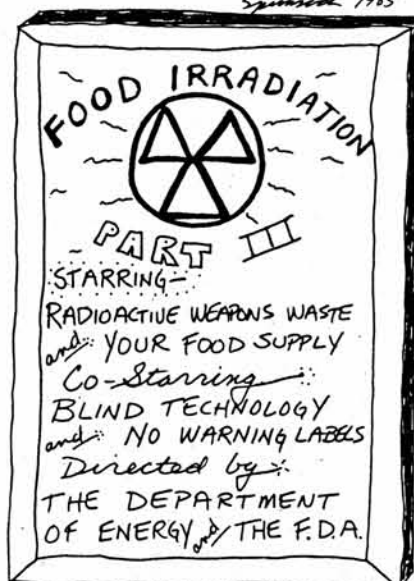 FOOD IRRADIATION
PART III
STARRING-
RADIOACTIVE WEAPONS WASTE
and: YOUR FOOD SUPPLY
Co-Starring:
BLIND TECHNOLOGY
and: NO WARNING LABELS
Directed by:
THE DEPARTMENT
OF ENERGY and THE F.D.A.